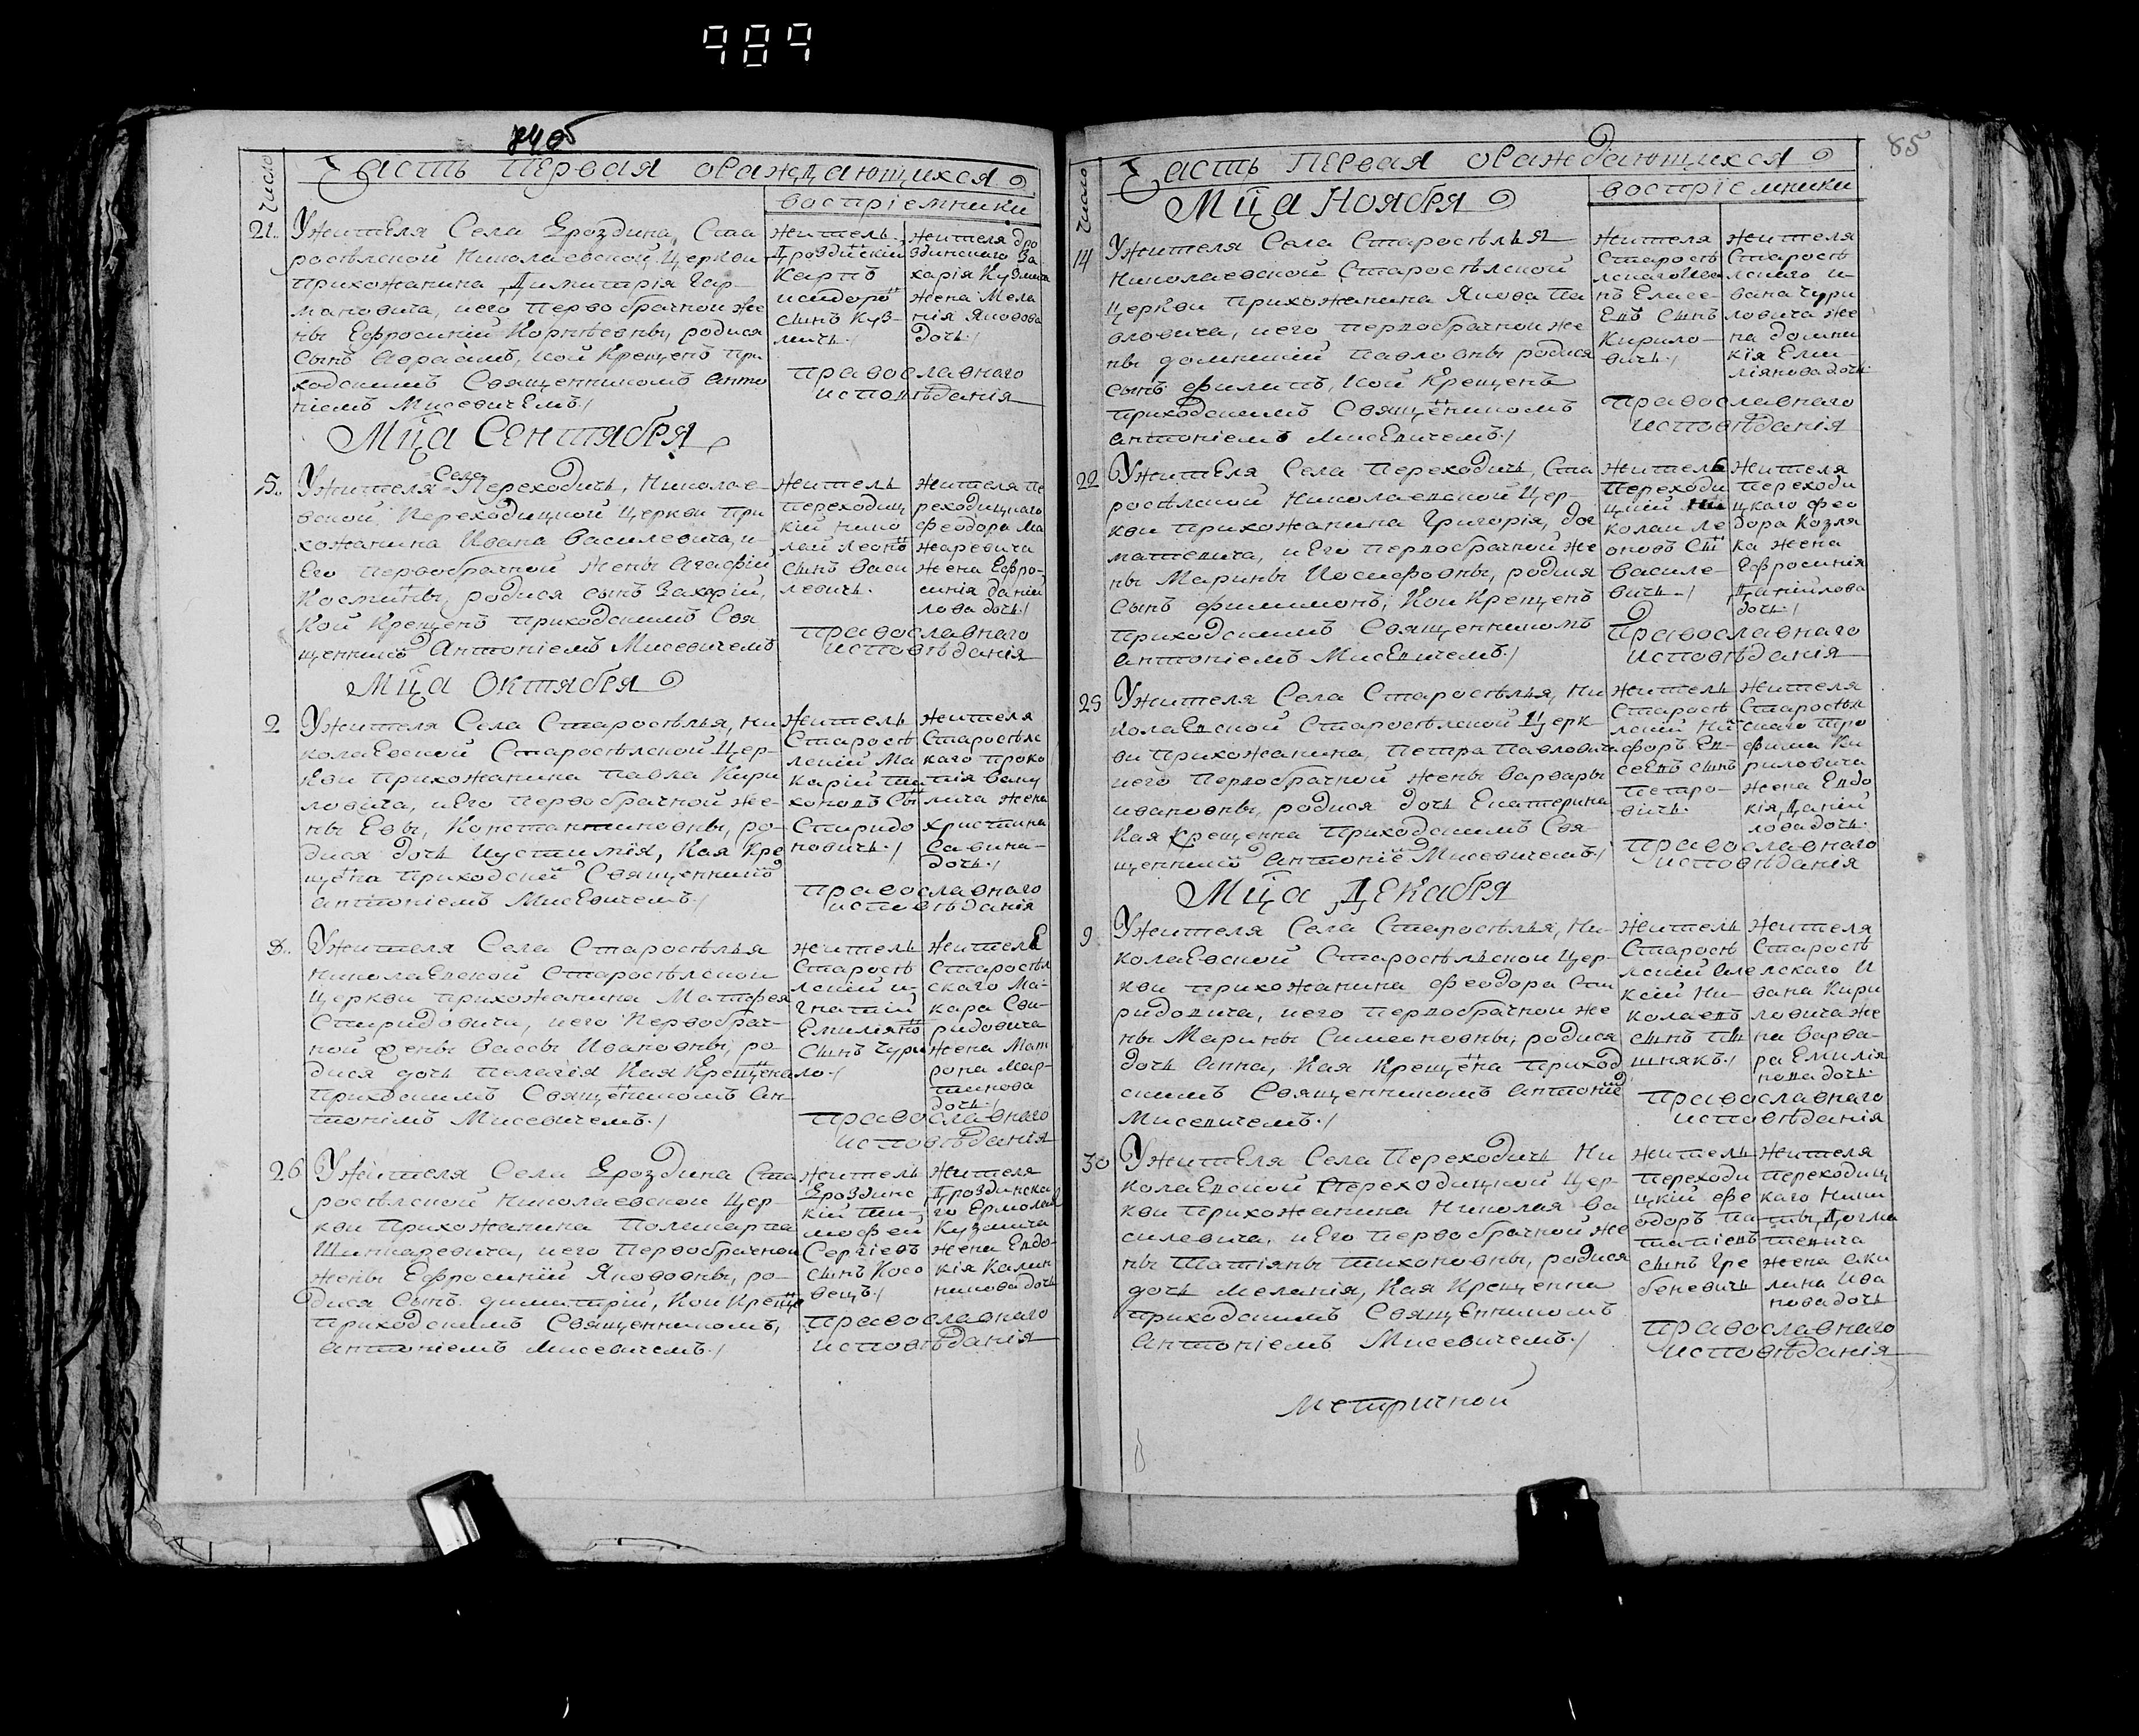 989
84об
Число
Часть первая ораждающихся
воспріемники
21.
Ужителя Села Дроздина, Ста
росѣлской Николаевской Церкви
прихожанина Димитрія Гар-
мановича, иего первобрачной же
ны Ефросиніи Корнѣевны, родися
сынъ Авраамъ, кой Крещенъ при
ходскимъ Священникомъ Анто
ніемъ Мисевичемъ./
житель
Дроздинскій
Карпъ
исидоро
сынъ Куз-
мичь./
жителя дро
здинского За
харія Кузмича
жена Мела
нія Яковова
дочь./
православнаго
исповѣданія
Мца Сентября
5..
Ужителя Села Переходичь, Николае-
вской Переходицкой Церкви при
хожанина Ивана Василевича, и-
Его первобрачной жены Агафіи
Космины, родися сынъ Захарій,
Кой Крещенъ приходскимъ Свя
щенникомъ Антоніемъ Мисевичемъ
Житель
переходиц
кій Нико
лай Леоно
сынъ Васи
левичь.
жителя пе
реходицкаго
феодора Ма
жаревича
жена Ефро-
синія даніи
лова дочь./
православнаго
исповѣданія
Мца Октября
2
Ужителя Села Старосѣлья, Ни
колаЕвской Старосѣлской Цер-
кви прихожанина Павла Кири
ловича, иЕго первобрачной же-
ны Евы, Константиновны, ро-
дися дочь Иустинія, Кая Кре
щена приходскимъ Священникомъ
Антоніемъ МисЕвичемъ./
Житель
Старосѣ
лскій Ма
карій Ти
хоновъ Сы
Спиридо
новичь./
жителя
Старосѣлс
каго проко
пія Ваку
лича жена
христина
Савина-
дочь./
православнаго
исповѣданія
8..
Ужителя Села Старосѣлья
НиколаЕвской Старосѣлской
Церкви прихожанина Матфея
Спиридовича, иего Первобрач-
ной жены Вассы Ивановны, ро-
дися дочь пелагія Кая Крещена
приходскимъ Священникомъ Ан-
тонімъ Мисевичемъ./
житель
Старосѣ
лскій и-
гнатій
Емиліяно
сынъ Чури
ло./
ЖителЕ
старосѣл
скаго Ма-
кара Сви-
ридовича
жена Мат
рона Мар-
тинова
дочь./
православнаго
исповѣданія
26
Ужителя Села Дроздина Ста
росѣлской Николаевской Цер-
кви Прихожанина Поликарпа
Шинкаревича, иего первобрачной
жены Ефросиніи Яковovны, ро-
дися Сынъ димитрій, Кой Креще
приходскимъ Священникомъ,
Антоніемъ Мисевичемъ./
Житель
Дроздинс
кій Ти-
мофей
Сергіевъ
сынъ Косо
вецъ./
жителя
Дроздинска
го Ермолая
Кузмича
жена Евдо-
кія Калин
никова дочь
православнаго
исповѣданія
85
Число
Часть первая ораждающихся
воспріемники
Мца Ноября
14
Ужителя Села Старосѣлья
Николаевской Старосѣлской
Церкви прихожанина Якова Па
вловича, иего первобрачной же
ны домникіи Павловны родися
сынъ филипъ, Кой Крещенъ
приходскимъ Священникомъ
Антоніемъ Мисевичемъ./
жителя
Старосѣ
лскаго Ива
нъ Елисе-
Евъ сынъ
Кирило-
вичь./
жителя
Старосѣ
лскаго и-
вана Чури
ловича же
на домни
кія Еми-
ліянова дочь.
православнаго
исповѣданія
22
Ужителя Села Переходичь, Ста
росѣлской Николаевской Цер-
кви прихожанина Григорія, дог
матевича, иЕго первобрачной же
ны Марины Иосифовны, родися
Сынъ филимонъ, Кои Крещенъ
приходскимъ Священникомъ
Антоніемъ МисЕвичемъ./
Житель
переходи
цкій Ни
колаи Ле
оновъ Сы
Василе-
вичь./
Жителя
переходи
цкаго фео
дора Козля
ка жена
Ефросинія
Даніилова
дочь./
православнаго
исповѣданія
25
Ужителя Села Старосѣлья, Ни
колаЕвской Старосѣлской Церк
ви прихожанина, Петра Павловича
иего первобрачной жены Варвары
ивановны, родися дочь Екатерина
Кая Крещенна приходскимъ Свя-
щенникомъ Антоніе Мисевичемъ./
житель
Старосѣ
лскій Ни
кифоръ Ев-
сеевъ сынъ
Петро-
вичь.
жителя
Старосѣл
скаго тро
фима Ки
риловича
жена Евдо
кія, Даніи
лова дочь.
православнаго
исповѣданія
Мца Декабря
9
Ужителя Села Старосѣлья, Ни-
колаЕвской Старосѣльской Цер-
кви прихожанина феодора Спи
ридовича, иего первобрачной же
ны Марины Симеоновны, родися
дочь Анна, Кая Крещена приход
скимъ Священникомъ Антоніе
Мисевичемъ./
житель
Старосѣ
лскій Але
ксій Ни-
колаевъ
сынъ Пи
шнякъ./
Жителя
Старосѣ
лскаго И
вана Кири
ловича же
на Варва-
ра Емилія
нова дочь.
православнаго
исповѣданія
30
Ужителя Села Переходичь Ни
колаЕвской Переходицкой Цер-
кви прихожанина Николая Ва
силевича, иЕго первобрачной же
ны Татіяны тихоновны, родися
дочь Меланія, Кая Крещенна
приходскимъ Священникомъ
Антоніемъ Мисевичемъ./
житель
переходи
цкій фе
одоръ Па-
тапіевъ
сынъ Гре
беневичь
Жителя
переходиц
каго Ники
ты, Догма
тевича
жена Аки
лина Ива
нова дочь
православнаго
исповѣданія
метричной